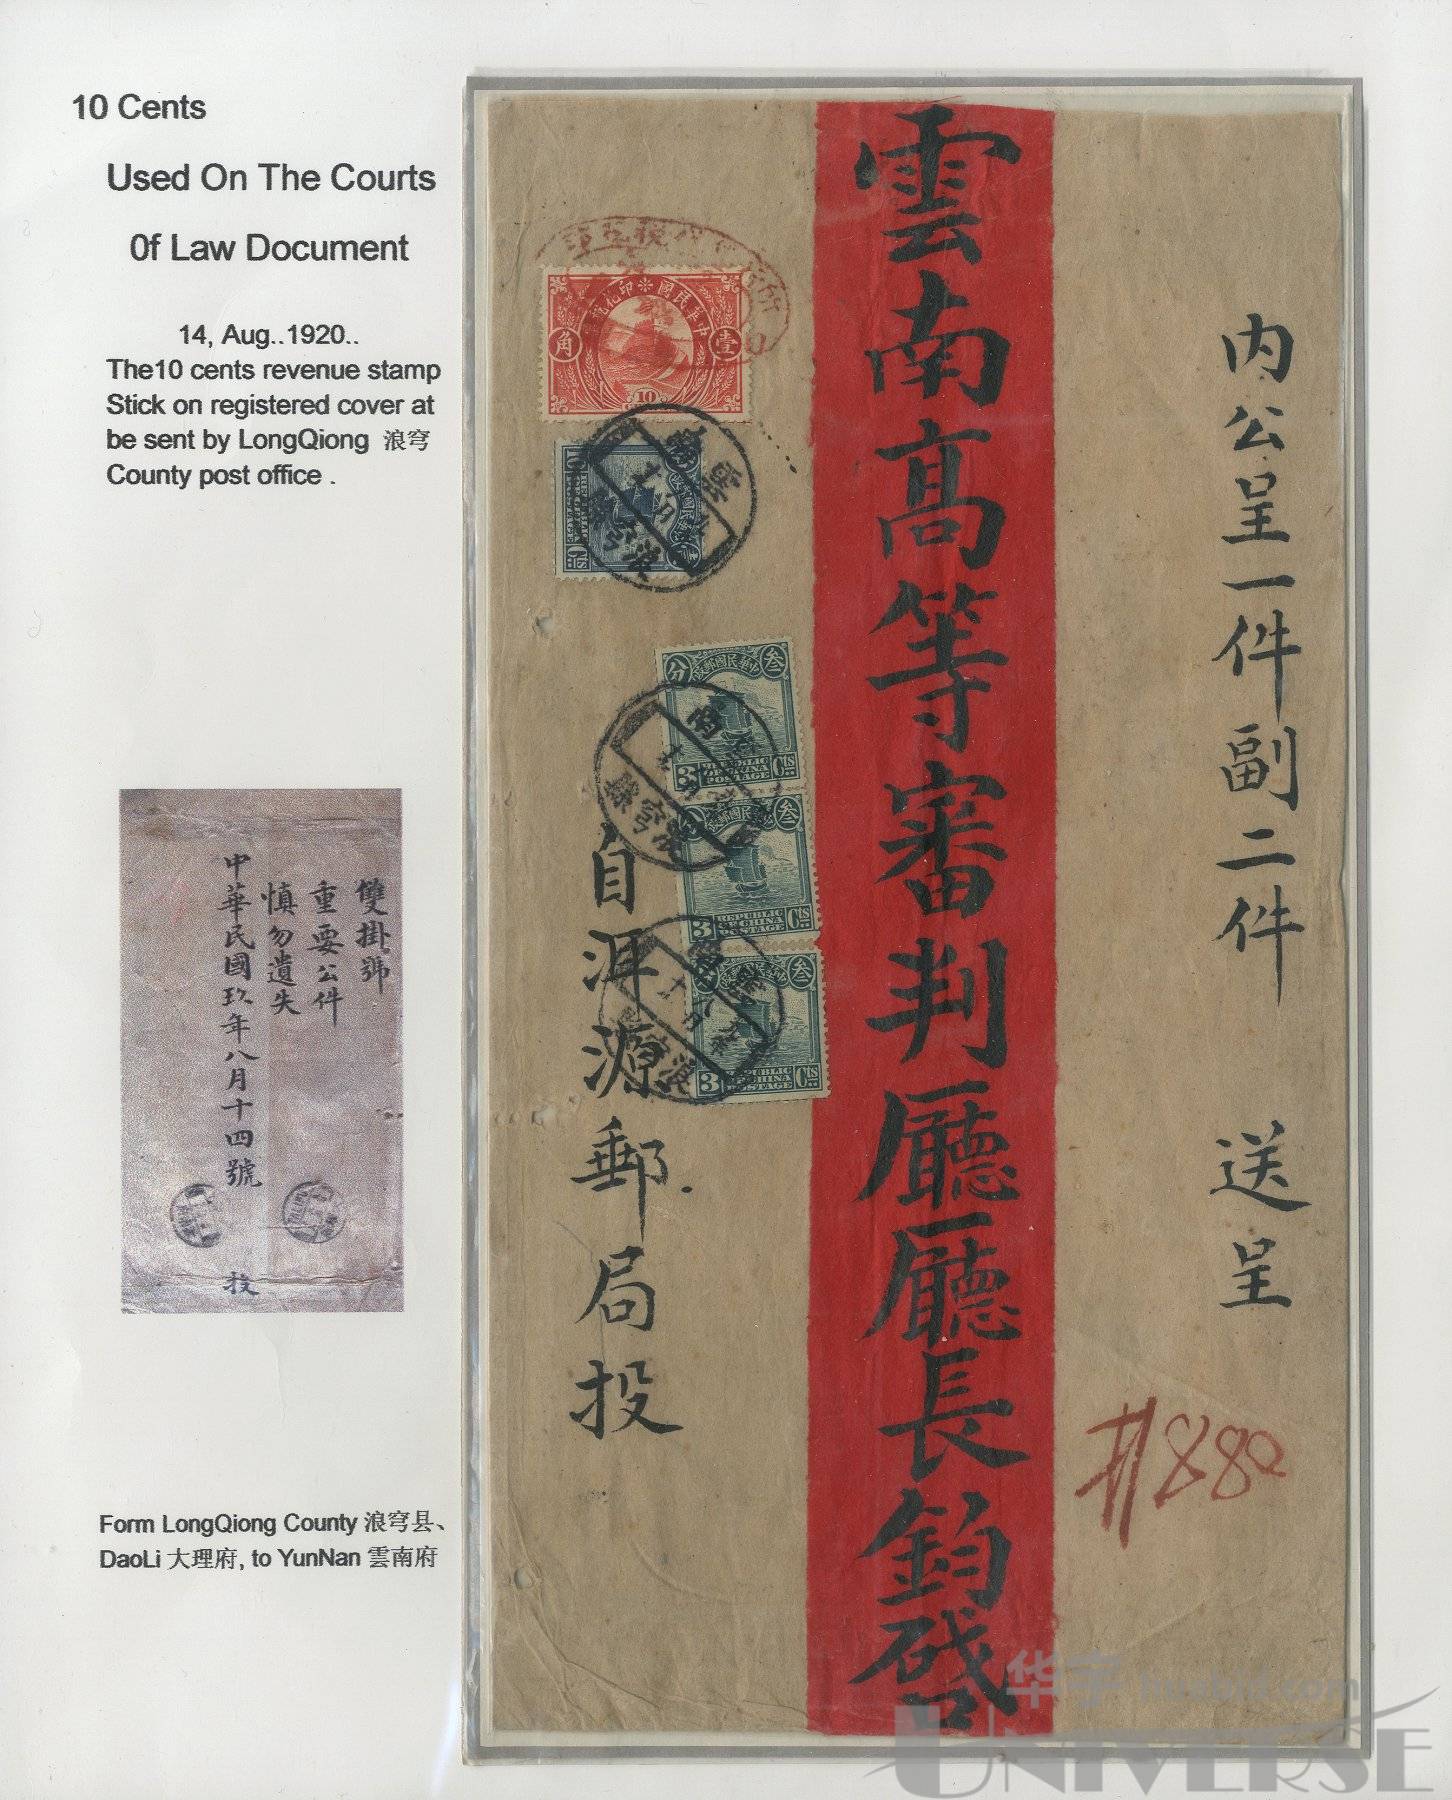 10 Cents
Used On The Courts
0f Law Document
14, Aug..1920..
The10 cents revenue stamp
Stick on registered cover at
be sent by LongQiong 浪穹
County post office .
雙掛號
重要公件
慎勿遺失
中華民國玖年八月十四號
投
Form LongQiong County 浪穹县、
DaoLi 大理府, to YunNan 雲南府
内公呈一件副二件 送呈
雲南高等審判廳廳長鈞啟
自洱源郵局投
#880
中華民國印花稅
壹 角
10
叁 分
中華民國郵政
3 Cts
REPUBLIC
OF CHINA
POSTAGE
叁
3 Cts
REPUBLIC
OF CHINA
POSTAGE
叁
3 Cts
REPUBLIC
OF CHINA
POSTAGE
华宇 huabid.com
UNIVERSE